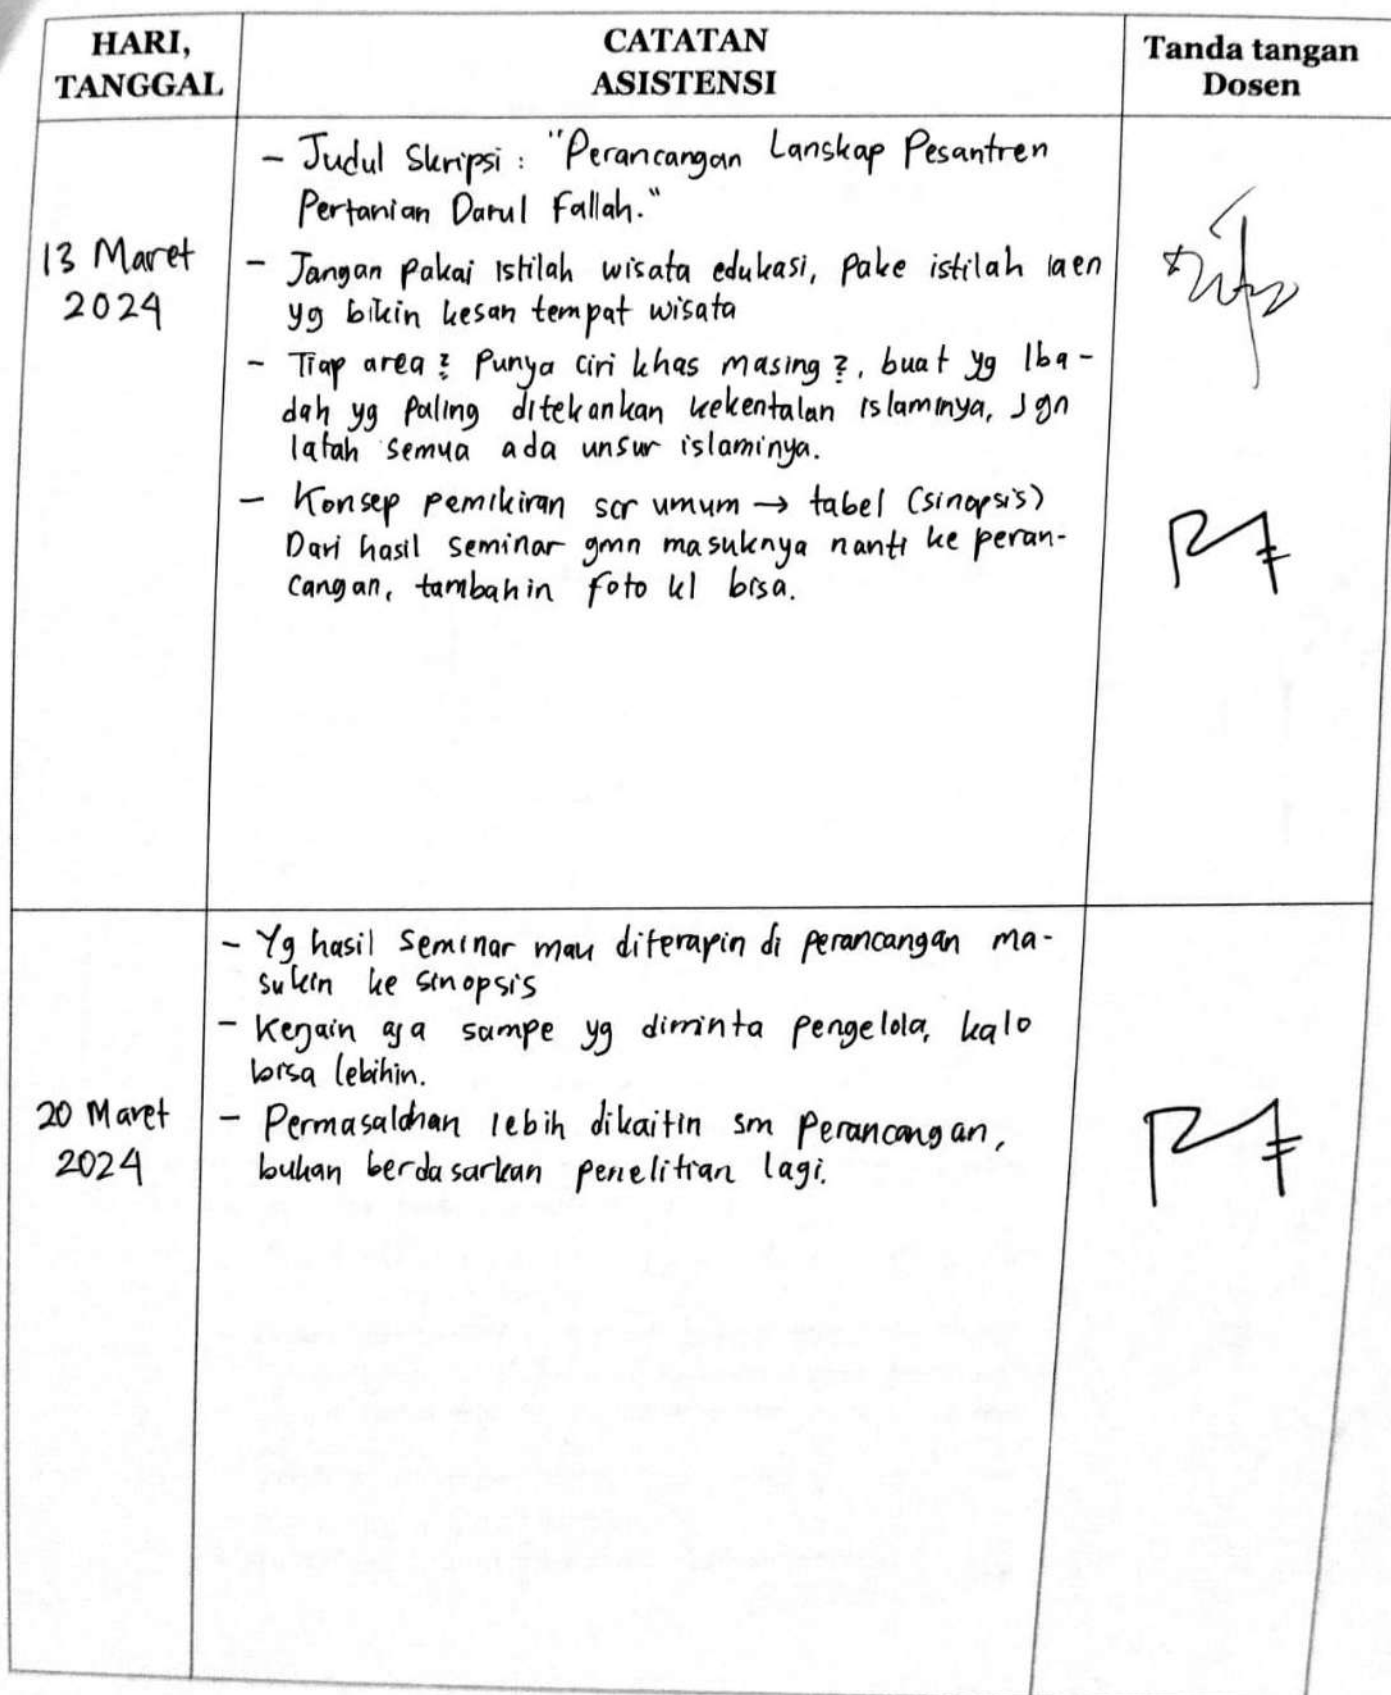 HARI,
TANGGAL
CATATAN
ASISTENSI
Tanda tangan
Dosen
13 Maret
2024
- Judul Skripsi : "Perancangan Lanskap Pesantren
Pertanian Darul Fallah."
- Jangan pakai istilah wisata edukasi, pake istilah laen
yg bikin kesan tempat wisata
- Tiap area2 punya ciri khas masing2, buat yg Iba-
dah yg paling ditekankan kekentalan islaminya, Jgn
latah semua ada unsur islaminya.
- Konsep pemikiran scr umum → tabel (sinopsis)
Dari hasil seminar gmn masuknya nanti ke peran-
cangan, tambahin foto kl bisa.
20 Maret
2024
- Yg hasil seminar mau diterapin di perancangan ma-
sukin ke sinopsis
- Kerjain aja sampe yg diminta pengelola, kalo
bisa lebihin.
- Permasalahan lebih dikaitin sm perancangan,
bukan berdasarkan penelitian lagi.